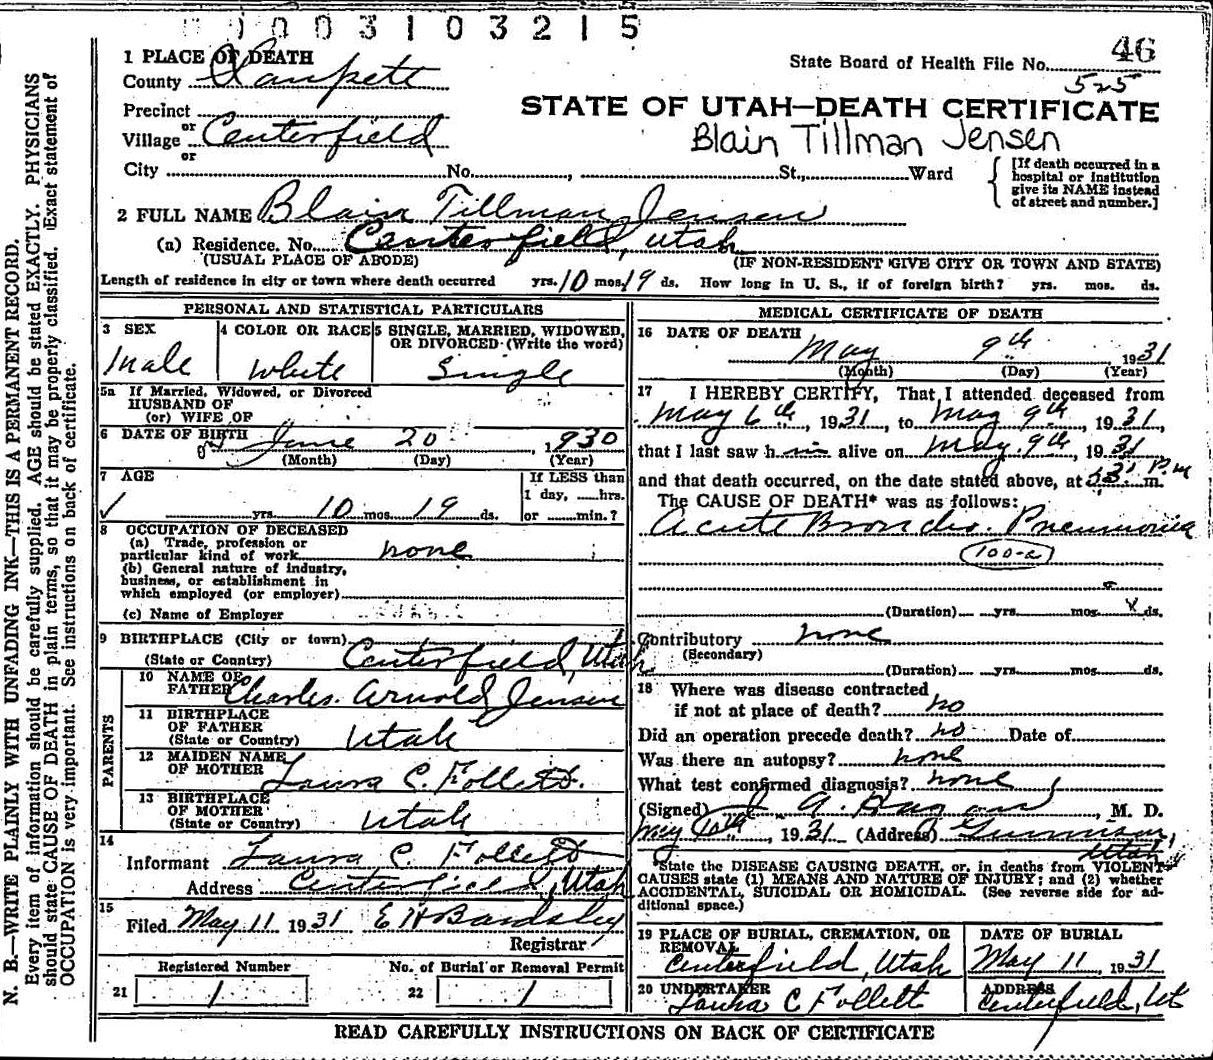 0 0 3 1 0 3 2 1 5
46
State Board of Health File No.
525
1 PLACE OF DEATH
County Sanpete
Precinct
or
Village Centerfield
or
City No. , St., Ward
STATE OF UTAH—DEATH CERTIFICATE
Blain Tillman Jensen
[If death occurred in a
hospital or institution
give its NAME instead
of street and number.]
2 FULL NAME Blain Tillman Jensen
(a) Residence. No. Centerfield, Utah
(USUAL PLACE OF ABODE) (IF NON-RESIDENT GIVE CITY OR TOWN AND STATE)
Length of residence in city or town where death occurred yrs. 10 mos. 19 ds. How long in U. S., if of foreign birth? yrs. mos. ds.
PERSONAL AND STATISTICAL PARTICULARS
3 SEX
Male
4 COLOR OR RACE
White
5 SINGLE, MARRIED, WIDOWED,
OR DIVORCED (Write the word)
Single
5a If Married, Widowed, or Divorced
HUSBAND OF
(or) WIFE OF
6 DATE OF BIRTH June 20, 1930
(Month) (Day) (Year)
7 AGE
yrs. 10 mos. 19 ds.
If LESS than
1 day, hrs.
or min.?
8 OCCUPATION OF DECEASED
(a) Trade, profession or
particular kind of work none
(b) General nature of industry,
business, or establishment in
which employed (or employer)
(c) Name of Employer
9 BIRTHPLACE (City or town) Centerfield, Utah
(State or Country)
PARENTS
10 NAME OF
FATHER Charles Arnold Jensen
11 BIRTHPLACE
OF FATHER
(State or Country) Utah
12 MAIDEN NAME
OF MOTHER Laura C. Follett
13 BIRTHPLACE
OF MOTHER
(State or Country) Utah
14
Informant Laura C. Follett
Address Centerfield, Utah
15
Filed May 11 1931 E H Bardsley
Registrar
Registered Number
21 1
No. of Burial or Removal Permit
22 1
MEDICAL CERTIFICATE OF DEATH
16 DATE OF DEATH
May 9th, 1931
(Month) (Day) (Year)
17 I HEREBY CERTIFY, That I attended deceased from
May 6th, 1931, to May 9th, 1931,
that I last saw him alive on May 9th, 1931
and that death occurred, on the date stated above, at P.m m.
The CAUSE OF DEATH* was as follows:
Acute Broncho. Pneumonia
100-a
(Duration) yrs. mos. ds.
Contributory none
(Secondary)
(Duration) yrs. mos. ds.
18 Where was disease contracted
if not at place of death? no
Did an operation precede death? no Date of
Was there an autopsy? none
What test confirmed diagnosis? none
(Signed) A. Hagan, M. D.
May 10th, 1931 (Address) Gunnison,
Utah
*State the DISEASE CAUSING DEATH, or, in deaths from VIOLENT
CAUSES state (1) MEANS AND NATURE OF INJURY; and (2) whether
ACCIDENTAL, SUICIDAL OR HOMICIDAL. (See reverse side for ad-
ditional space.)
19 PLACE OF BURIAL, CREMATION, OR
REMOVAL
Centerfield, Utah
DATE OF BURIAL
May 11, 1931
20 UNDERTAKER
Laura C Follett
ADDRESS
Centerfield, Ut
READ CAREFULLY INSTRUCTIONS ON BACK OF CERTIFICATE
N. B.—WRITE PLAINLY WITH UNFADING INK—THIS IS A PERMANENT RECORD.
Every item of information should be carefully supplied. AGE should be stated EXACTLY. PHYSICIANS
should state CAUSE OF DEATH in plain terms, so that it may be properly classified. Exact statement of
OCCUPATION is very important. See instructions on back of certificate.